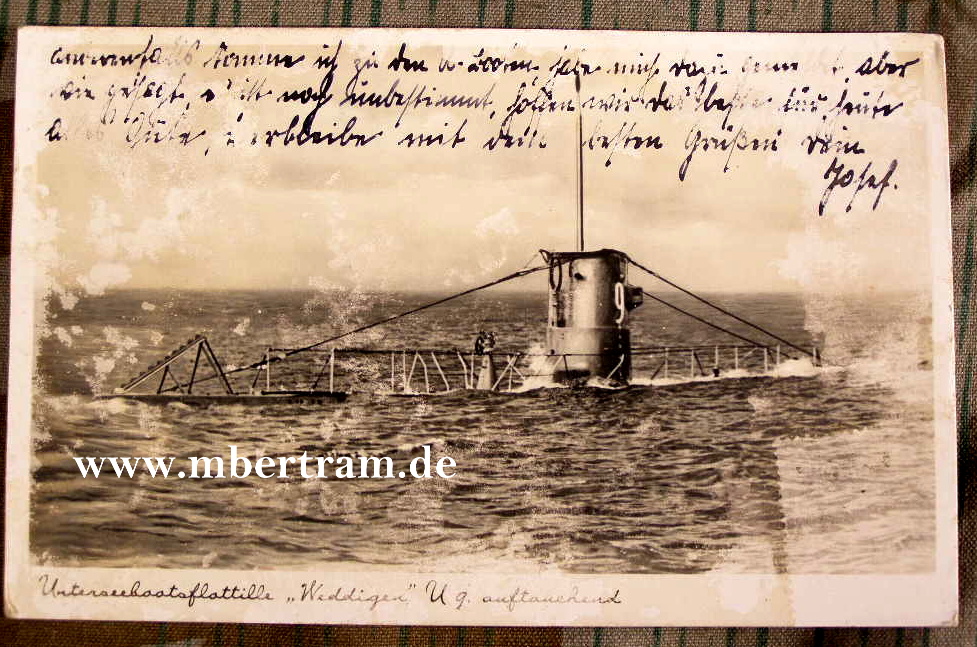 andrenfalls komme ich zu den U-Booten, habe mich dazu gemeldet, aber
wie gesagt, ist noch unbestimmt, hoffen wir das beste für heute
alles Gute, verbleibe mit den besten Grüßen Dein
Josef.
9
www.mbertram.de
Unterseebootsflottille „Weddigen" U 9. auftauchend